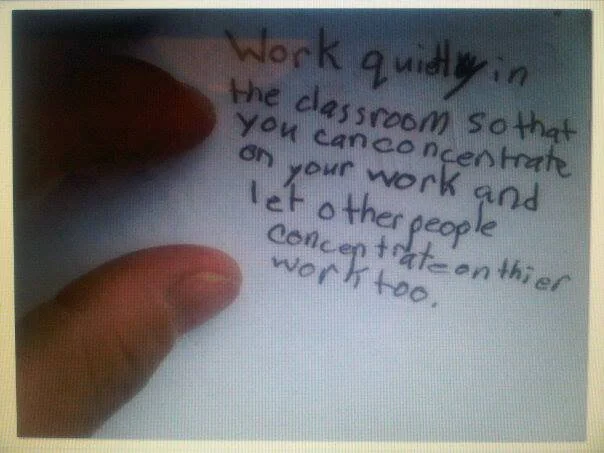 Work quietly in
the classroom so that
you can concentrate
on your work and
let other people
concentrate on thier
work too.